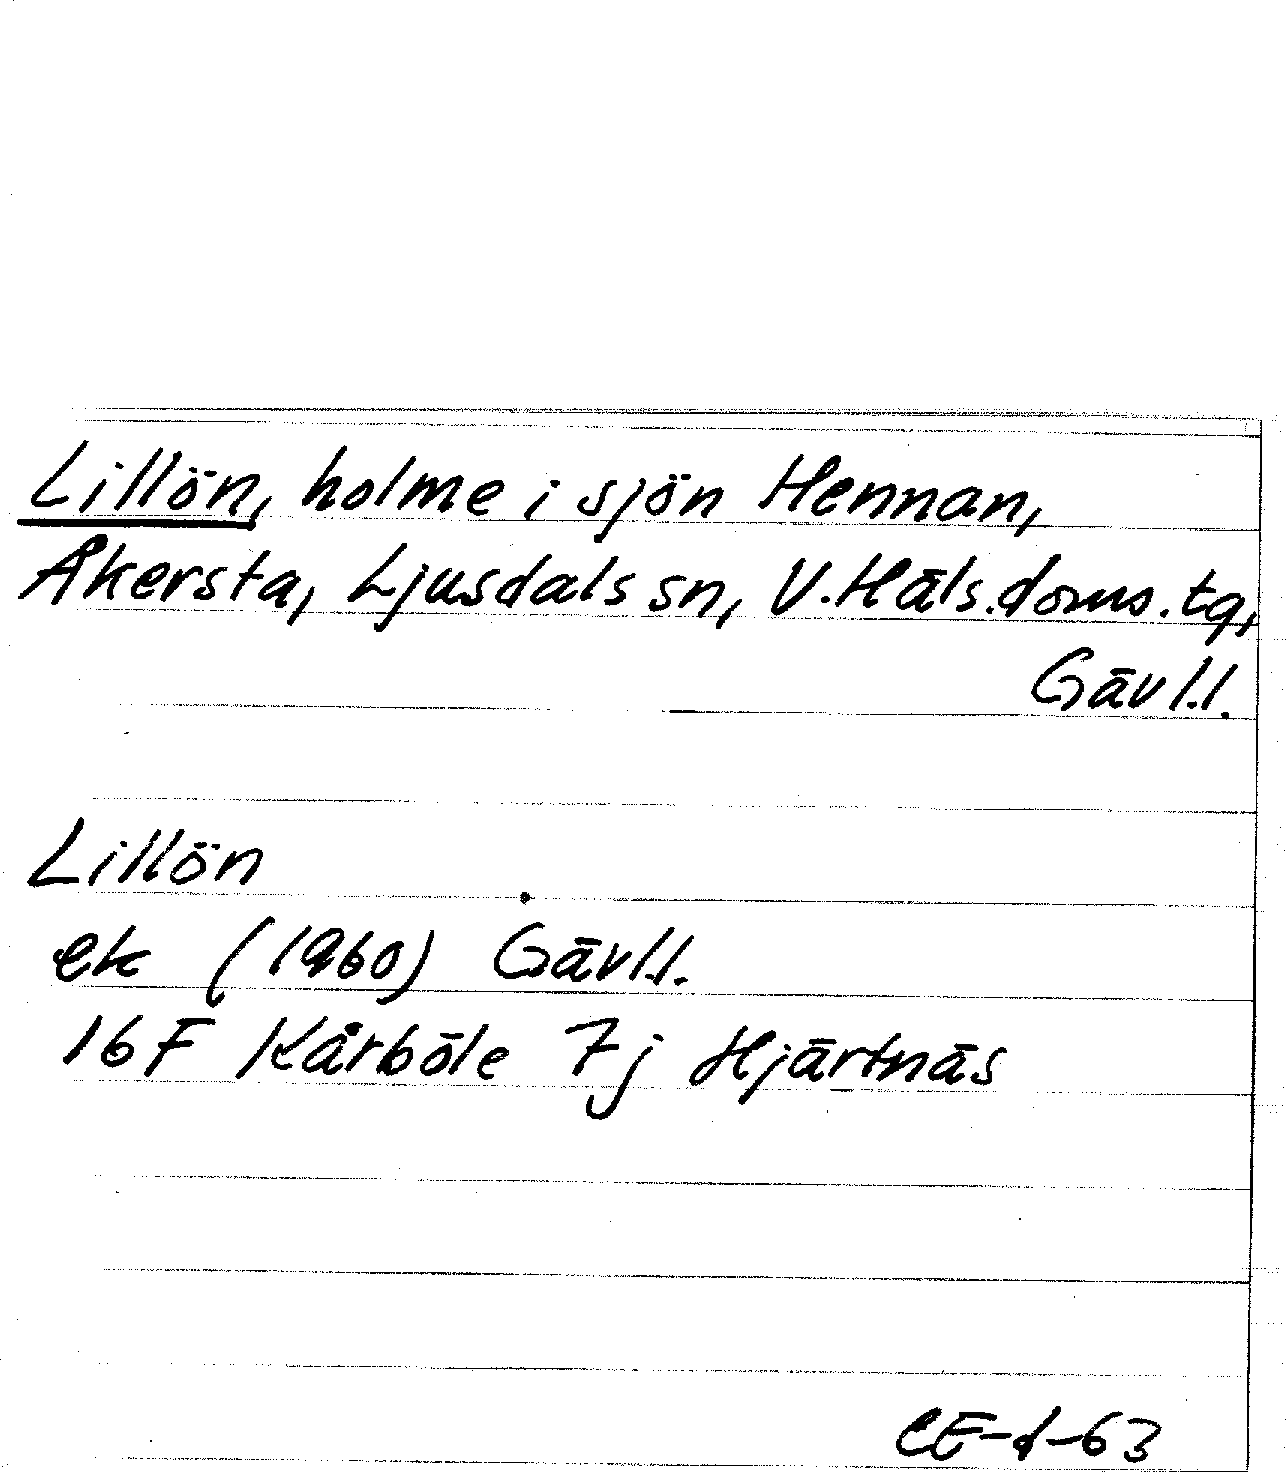 Lillön, holme i sjön Hennan,
Åkersta, Ljusdals sn, V.Häls.doms.tg,
Gävl.l.
Lillön
ek (1960) Gävl.l.
16F Kårböle 7j Hjärtnäs
CE-d-63